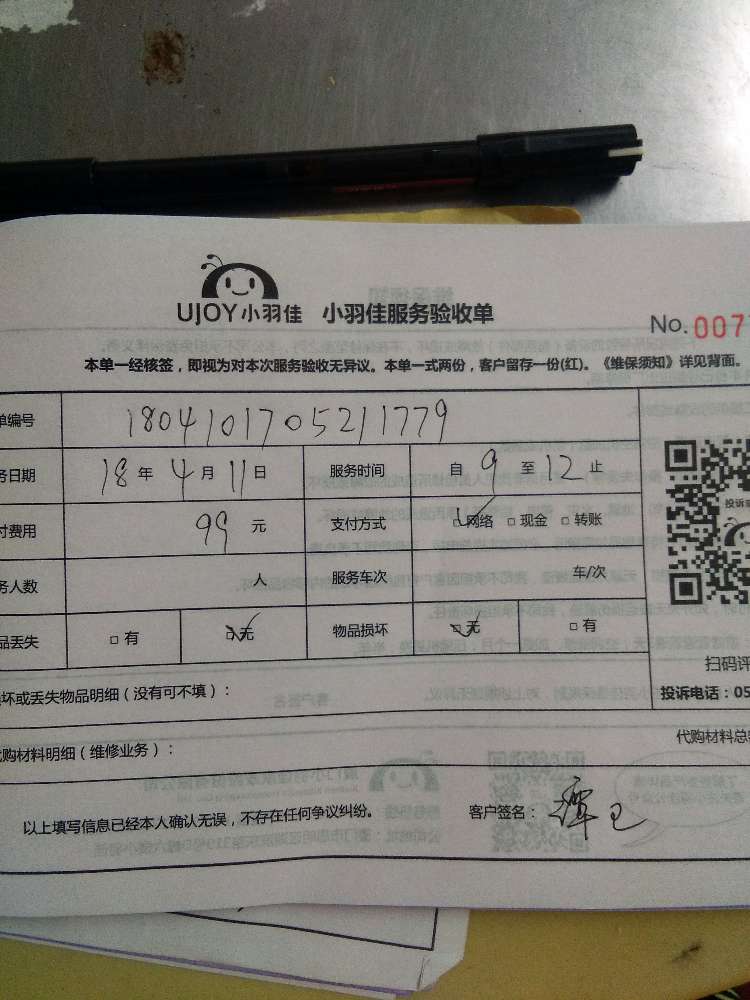 UJOY小羽佳 小羽佳服务验收单
No. 007
本单一经核签，即视为对本次服务验收无异议。本单一式两份，客户留存一份(红)。《维保须知》详见背面。
单编号 1804101705211779
务日期 18 年 4 月 11 日 服务时间 自 9 至 12 止
付费用 99 元 支付方式 □网络 □现金 □转账
务人数 人 服务车次 车/次
品丢失 □有 □无 物品损坏 □无 □有
投诉
扫码评
投诉电话：05
坏或丢失物品明细（没有可不填）：
购材料明细（维修业务）：
代购材料总
以上填写信息已经本人确认无误，不存在任何争议纠纷。 客户签名：